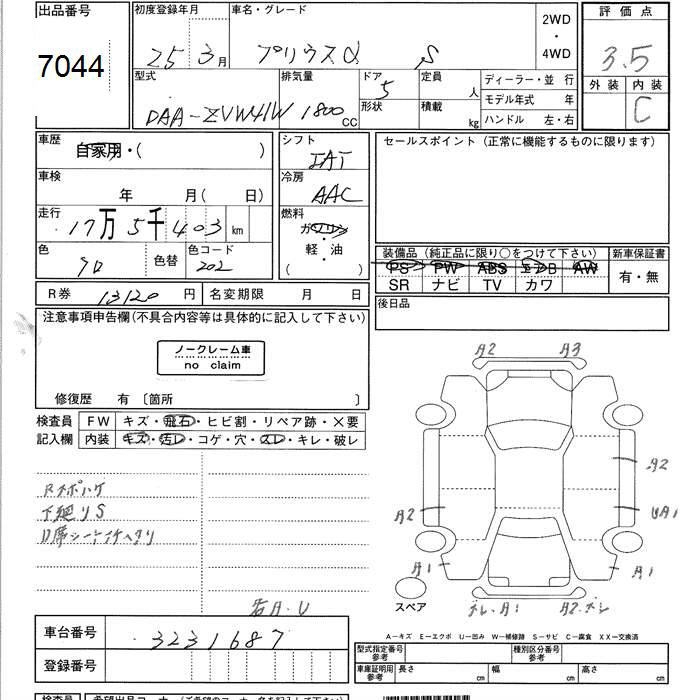 出品番号 初度登録年月 車名・グレード 2WD・4WD 評価点
7044 25 3月 プリウスα S 3.5
型式 排気量 ドア 5 定員 人 ディーラー・並行 外装 内装
DAA-ZVW41W 1800 CC 形状 積載 kg モデル年式 年 C
ハンドル 左・右
車歴 自家用・( ) シフト IAT セールスポイント (正常に機能するものに限ります)
車検 年 月( 日) 冷房 AAC
走行 17万5千403 km 燃料 ガソリン・軽・油 ( )
色 クロ 色替 色コード 202
装備品 (純正品に限り○をつけて下さい) 新車保証書
PS PW ABS エアB AW 有・無
SR ナビ TV カワ
R券 13120 円 名変期限 月 日 後日品
注意事項申告欄(不具合内容等は具体的に記入して下さい)
ノークレーム車
no claim
修復歴 有 〔箇所 〕
検査員 FW キズ・飛石・ヒビ割・リペア跡・×要
記入欄 内装 キズ・汚レ・コゲ・穴・スレ・キレ・破レ
A2 A3
A2
A2 UA1
A1 A1
下廻りS
スペア
A・U
A1 A2
A-キズ E-エクボ U-凹み W-補修跡 S-サビ C-腐食 XX-交換済
車台番号 3231687
登録番号
型式指定番号 参考 種別区分番号 参考
車庫証明用 参考 長さ cm 幅 cm 高さ cm